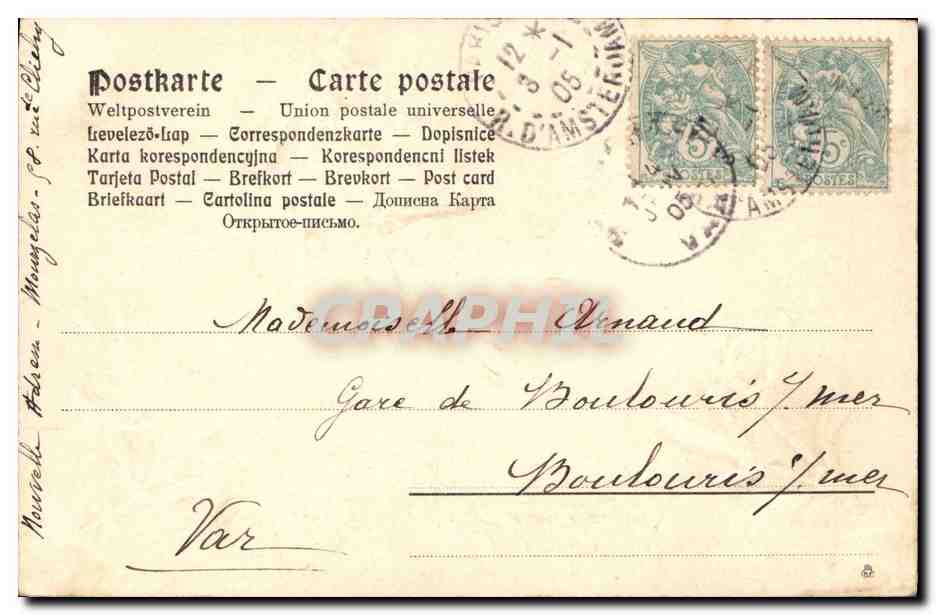 Postkarte — Carte postale
Weltpostverein — Union postale universelle
Levelező-Lap — Correspondenzkarte — Dopisnice
Karta korespondencyjna — Korespondencni listek
Tarjeta Postal — Brefkort — Brevkort — Post card
Briefkaart — Cartolina postale — Дописна Карта
Открытое-письмо.
12 *
3 -1
05
R. D'AMSTERDAM
5c
POSTES
5c
POSTES
05
AMSTERDAM
05
CPAPHIL
Mademoiselle Arnaud
Gare de Boulouris s/mer
Boulouris s/mer
Var
Nouvelle Adresse - - 58. rue de Clichy